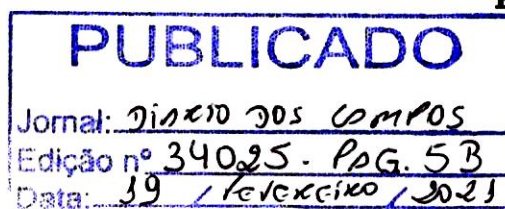 PUBLICADO
Jornal: DIÁRIO DOS CAMPOS
Edição nº 34025 - PAG. 5B
Data: 19 / FEVEREIRO / 2021